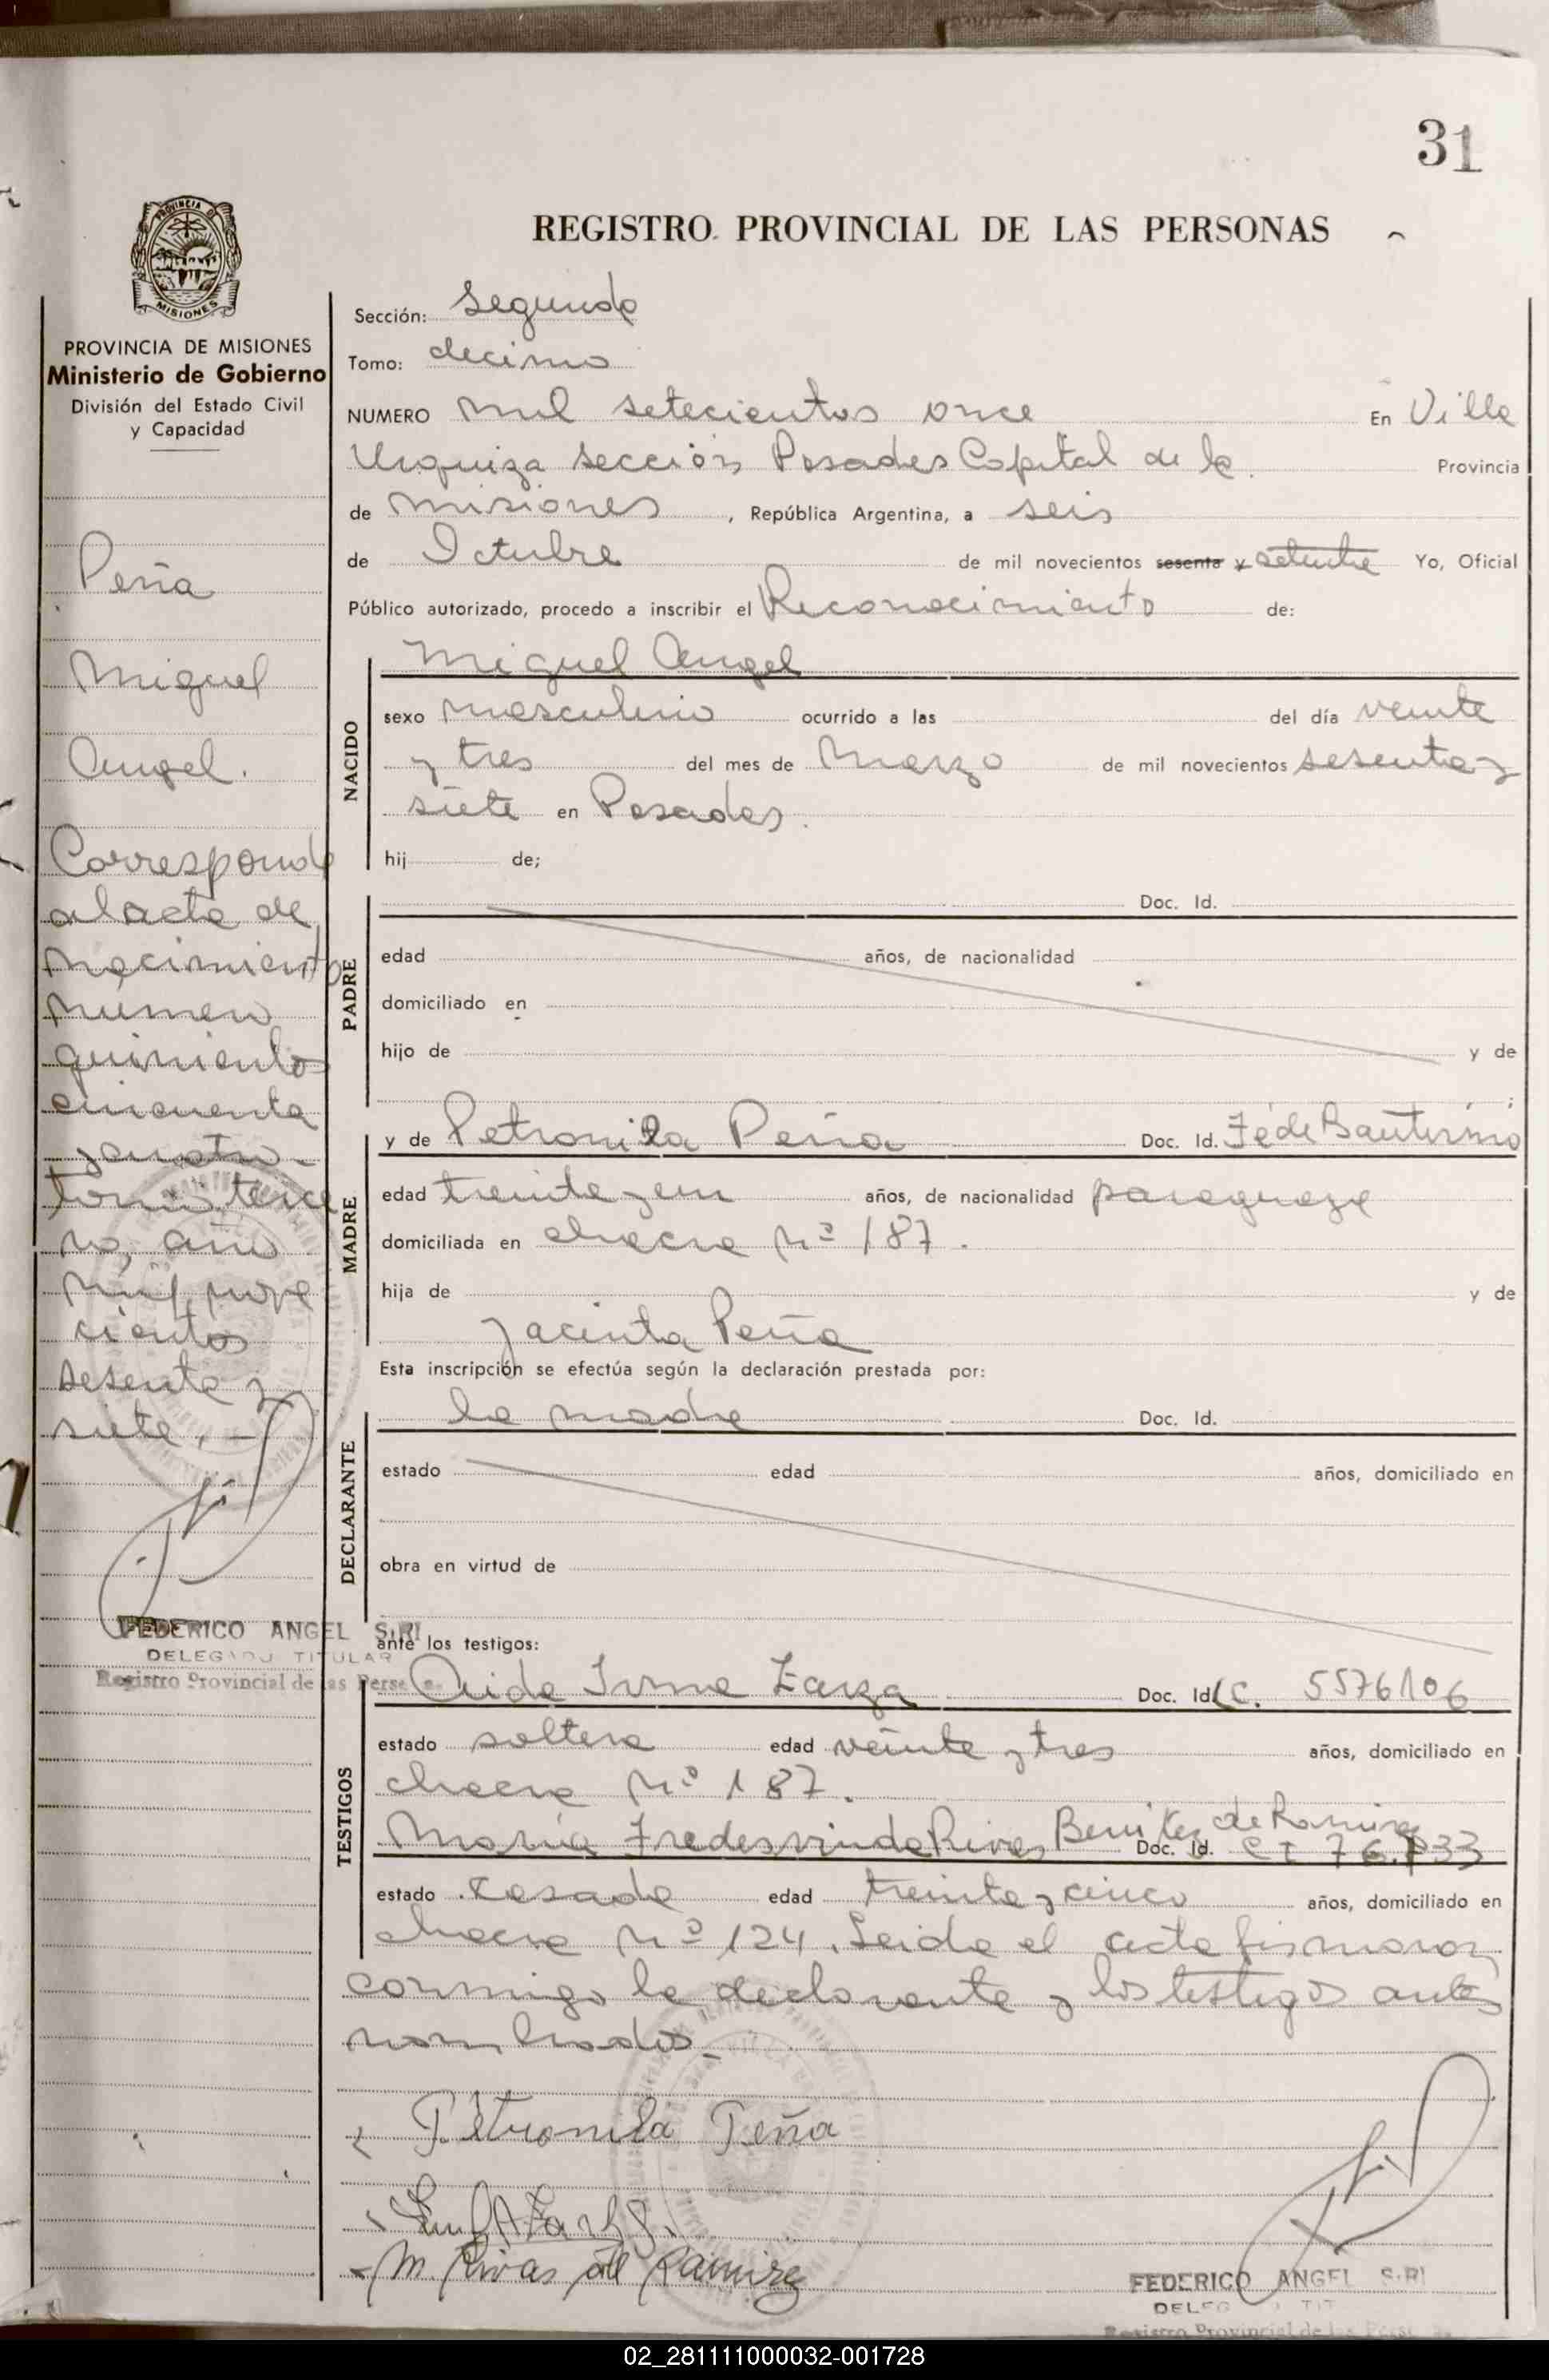 31
REGISTRO PROVINCIAL DE LAS PERSONAS
PROVINCIA DE MISIONES
MISIONES
PROVINCIA DE MISIONES
Ministerio de Gobierno
División del Estado Civil
y Capacidad
Peña
Miguel
Angel.
Corresponde
al acta de
nacimiento
número
quinientos
cincuenta
y cuatro
tomo terce
ro, año
mil nove
cientos
sesenta y
siete. -
FEDERICO ANGEL SIRI
DELEGADO TITULAR
Registro Provincial de las Perso
Sección: Segunda
Tomo: decimo
NUMERO mil setecientos once En Villa
Urquiza sección Posadas Capital de la Provincia
de Misiones , República Argentina, a seis
de Octubre de mil novecientos sesenta y setenta Yo, Oficial
Público autorizado, procedo a inscribir el Reconocimiento de:
NACIDO
Miguel Angel
sexo masculino ocurrido a las del día veinte
y tres del mes de Marzo de mil novecientos sesenta y
siete en Posadas.
hij de;
PADRE
Doc. Id.
edad años, de nacionalidad
domiciliado en
hijo de y de
;
MADRE
y de Petronila Peña Doc. Id. Fé de Bautismo
edad treinta y un años, de nacionalidad paraguaya
domiciliada en chacra Nº 187.
hija de y de
Jacinta Peña
Esta inscripción se efectúa según la declaración prestada por:
DECLARANTE
la madre Doc. Id.
estado edad años, domiciliado en
obra en virtud de
ante los testigos:
TESTIGOS
Aida Irma Zarza Doc. Id. LC. 5576106
estado soltera edad veinte y tres años, domiciliado en
chacra Nº 187.
María Fredesvinda Rivas Benitez de Ramirez Doc. Id. CI 76.733
estado casada edad treinta y cinco años, domiciliado en
chacra Nº 124. Leida el acta firmaron
conmigo la declarante y los testigos antes
nombrados.
Petronila Peña
M. Rivas de Ramirez
FEDERICO ANGEL SIRI
DELEGADO TIT
Registro Provincial de las Perso
02_281111000032-001728